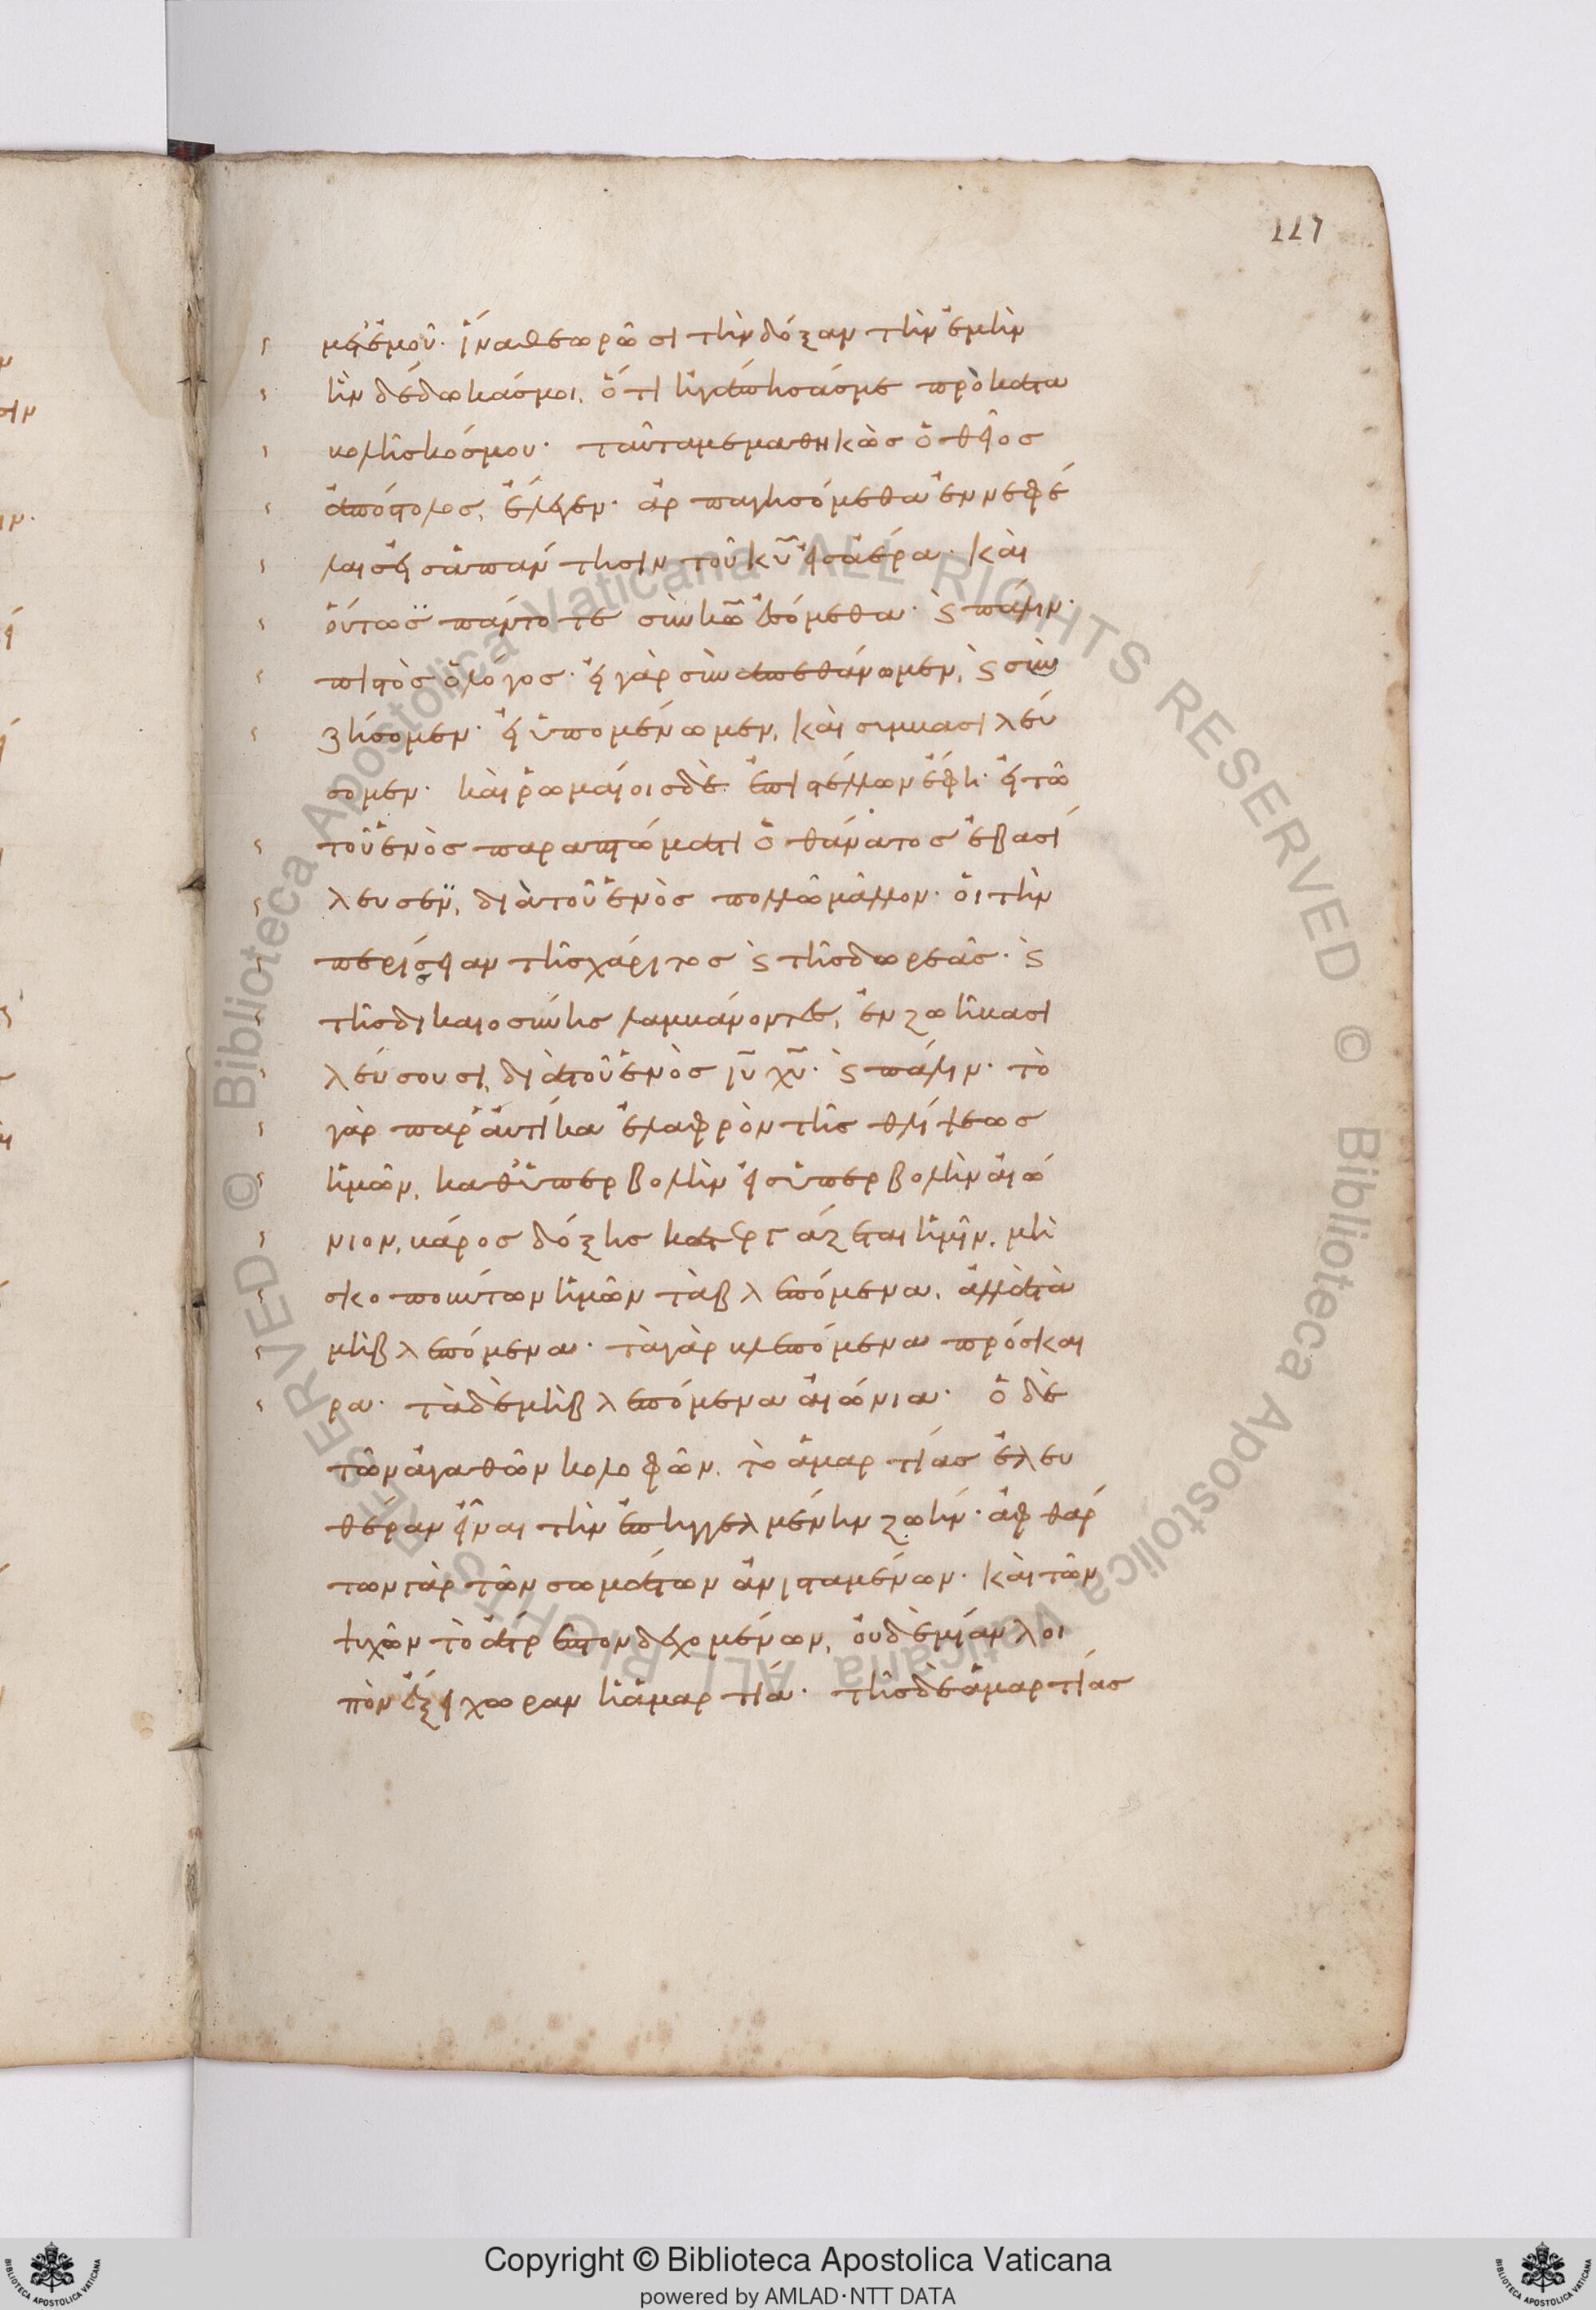 117
μετ' ἐμοῦ. ἵνα θεωρῶσι τὴν δόξαν τὴν ἐμὴν
ἣν δέδωκάς μοι, ὅτι ἠγάπησάς με πρὸ κατα
βολῆς κόσμου. ταῦτα μεμαθηκὼς ὁ θεῖος
ἀπόστολος, ἔλεγεν. ἁρπαγησόμεθα ἐν νεφέ
λαις εἰς ἀπάντησιν τοῦ κυ εἰς ἀέρα. καὶ
οὕτως πάντοτε σὺν κω ἐσόμεθα. ϛ πάλιν.
πιστὸς ὁ λόγος. εἰ γὰρ συναπεθάνομεν, ϛ συν
ζήσομεν. εἰ ὑπομένωμεν, καὶ συμβασιλεύ
σομεν. καὶ ῥωμαίοις δὲ ἐπιστέλλων ἔφη. εἰ τῶ
τοῦ ἑνὸς παραπτώματι ὁ θάνατος ἐβασί
λευσεν, διὰ τοῦ ἑνὸς πολλῶ μᾶλλον. οἱ τὴν
περισσείαν τῆς χάριτος ϛ τῆς δωρεᾶς. ϛ
τῆς δικαιοσύνης λαμβάνοντες, ἐν ζωῆ βασι
λεύσουσι, διὰ τοῦ ἑνὸς ιυ χυ. ϛ πάλιν. τὸ
γὰρ παρ' αὐτίκα ἐλαφρὸν τῆς θλίψεως
ἡμῶν, καθ' ὑπερβολὴν εἰς ὑπερβολὴν αἰώ
νιον, βάρος δόξης κατεργάζεται ἡμῖν, μὴ
σκοπούντων ἡμῶν τὰ βλεπόμενα, ἀλλὰ τὰ
μὴ βλεπόμενα. τὰ γὰρ βλεπόμενα πρόσκαι
ρα. τὰ δὲ μὴ βλεπόμενα αἰώνια. ὁ δὲ
τῶν ἀγαθῶν κολοφῶν, τὸ ἁμαρτίας ἐλευ
θέραν εἶναι τὴν ἐπηγγελμένην ζωήν. ἀφθάρ
των γὰρ τῶν σωμάτων ἀνισταμένων. καὶ τῶν
ψυχῶν τὸ ἄτρεπτον δεχομένων, οὐδεμίαν λοι
πὸν ἕξει χώραν ἡ ἁμαρτία. τῆς δὲ ἁμαρτίας
Copyright © Biblioteca Apostolica Vaticana
powered by AMLAD·NTT DATA